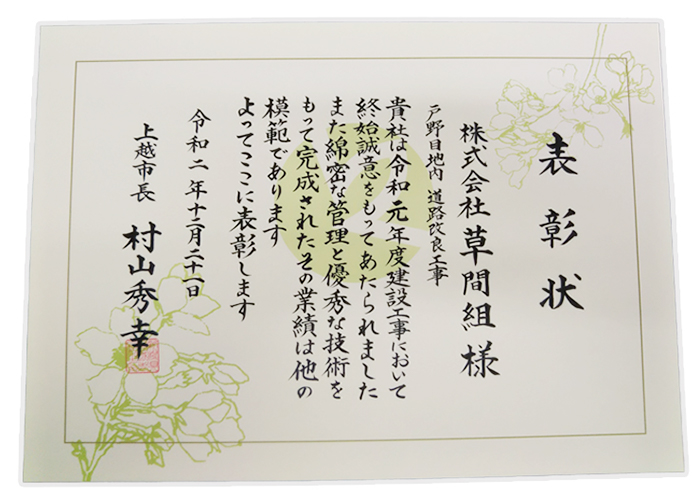 表彰状
株式会社草間組 様
戸野目地内 道路改良工事
貴社は令和元年度建設工事において
終始誠意をもってあたられました
また綿密な管理と優秀な技術を
もって完成されたその業績は他の
模範であります
よってここに表彰します
令和二年十二月二十一日
上越市長 村山秀幸